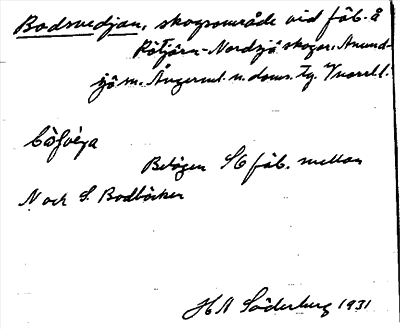 Bodsvedjan, skogsområde vid fäb. å
Rötjärn-Nordsjö skogar. Anund-
sjö sn. Ångerml. n. doms. tg. V
Belägen SO fäb. mellan
N och S. Bodbäcken
H N Söderberg 1931